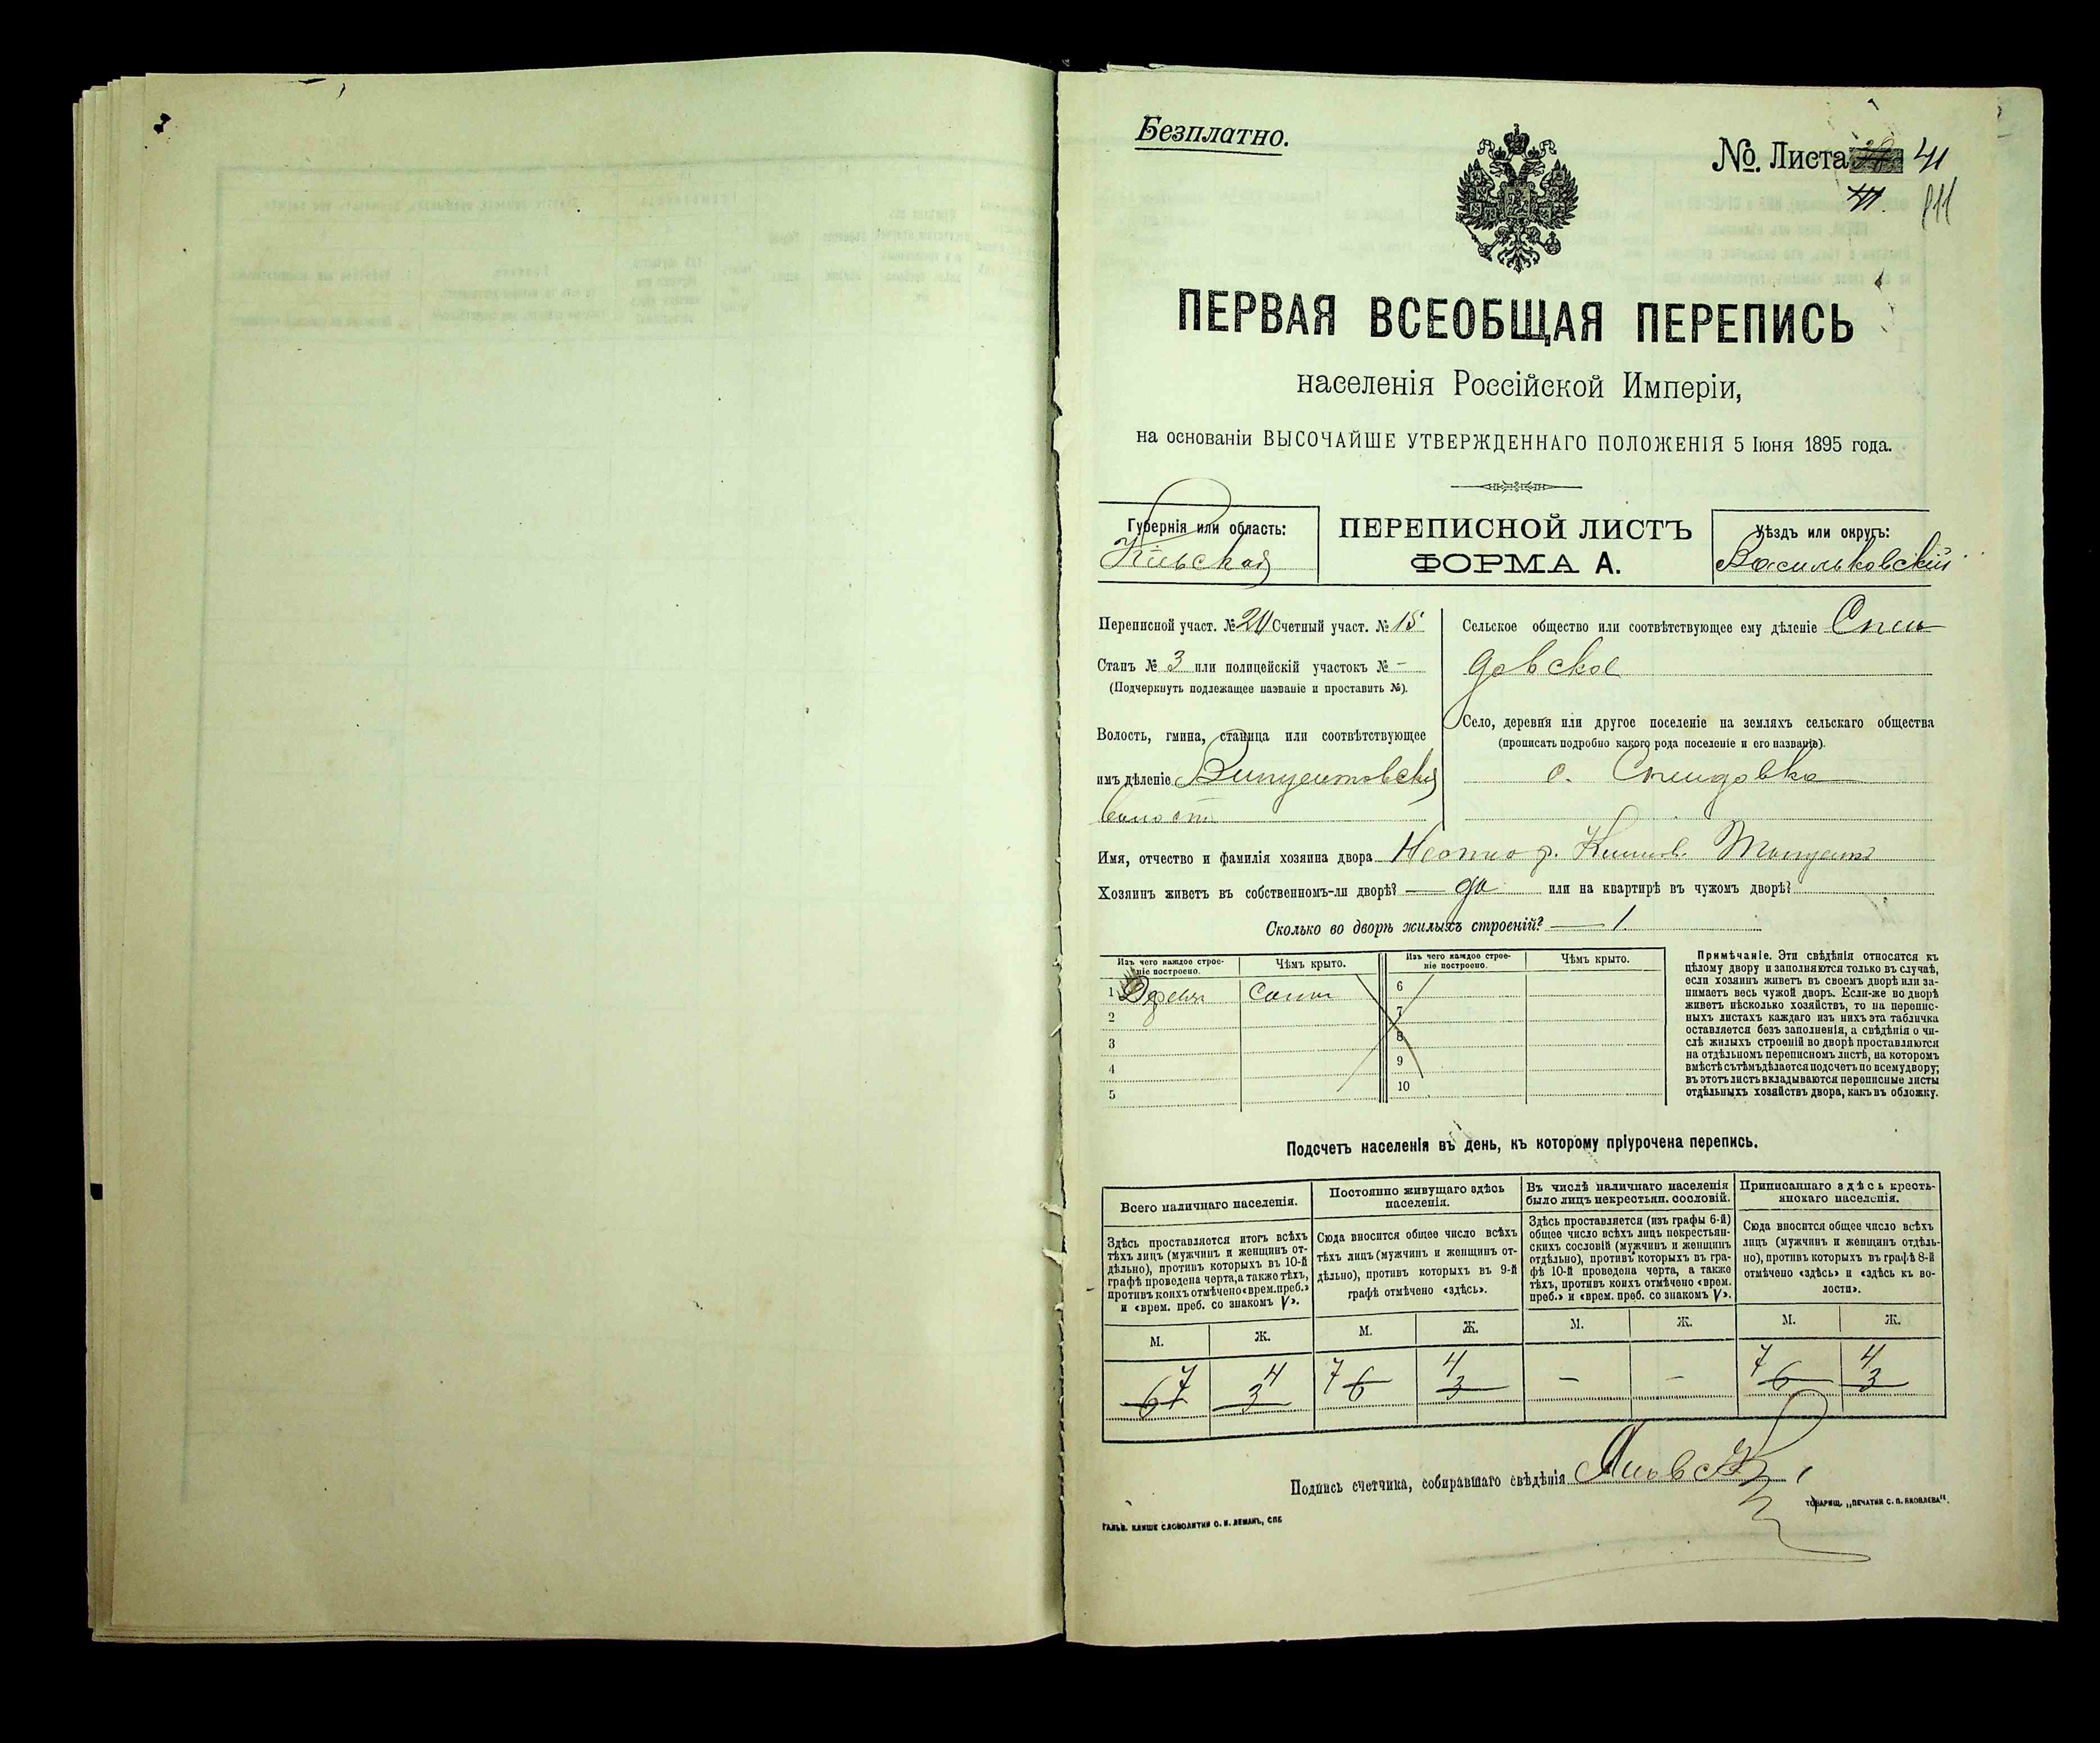 Безплатно.
№. Листа 41
ПЕРВАЯ ВСЕОБЩАЯ ПЕРЕПИСЬ
населенія Россійской Имперіи,
на основаніи ВЫСОЧАЙШЕ УТВЕРЖДЕННАГО ПОЛОЖЕНІЯ 5 Іюня 1895 года.
Губернія или область:
Кіевская
ПЕРЕПИСНОЙ ЛИСТЪ
ФОРМА А.
Уѣздъ или округъ:
Васильковскій
Переписной участ. № 20 Счетный участ. № 15
Станъ № 3 или полицейскій участокъ № –
(Подчеркнуть подлежащее названіе и проставить №).
Волость, гмина, станица или соотвѣтствующее
имъ дѣленіе Винцентовской
волости
Сельское общество или соотвѣтствующее ему дѣленіе
довское
Село, деревня или другое поселеніе на земляхъ сельскаго общества
(прописать подробно какого рода поселеніе и его названіе).
с.
Имя, отчество и фамилія хозяина двора
Хозяинъ живетъ въ собственномъ-ли дворѣ? — да или на квартирѣ въ чужомъ дворѣ?
Сколько во дворѣ жилыхъ строеній? — 1.
Изъ чего каждое строе-
ніе построено.
Чѣмъ крыто.
Изъ чего каждое строе-
ніе построено.
Чѣмъ крыто.
1 солом 6
2 7
3 8
4 9
5 10
Примѣчаніе. Эти свѣдѣнія относятся къ
цѣлому двору и заполняются только въ случаѣ,
если хозяинъ живетъ въ своемъ дворѣ или за-
нимаетъ весь чужой дворъ. Если-же во дворѣ
живетъ нѣсколько хозяйствъ, то на перепис-
ныхъ листахъ каждаго изъ нихъ эта табличка
оставляется безъ заполненія, а свѣдѣнія о чи-
слѣ жилыхъ строеній во дворѣ проставляются
на отдѣльномъ переписномъ листѣ, на которомъ
вмѣстѣ съ тѣмъ дѣлается подсчетъ по всему двору;
въ этотъ листъ вкладываются переписные листы
отдѣльныхъ хозяйствъ двора, какъ въ обложку.
Подсчетъ населенія въ день, къ которому пріурочена перепись.
Всего наличнаго населенія.
Здѣсь проставляется итогъ всѣхъ
тѣхъ лицъ (мужчинъ и женщинъ от-
дѣльно), противъ которыхъ въ 10-й
графѣ проведена черта, а также тѣхъ,
противъ коихъ отмѣчено «врем. преб.»
и «врем. преб. со знакомъ V».
Постоянно живущаго здѣсь
населенія.
Сюда вносится общее число всѣхъ
тѣхъ лицъ (мужчинъ и женщинъ от-
дѣльно), противъ которыхъ въ 9-й
графѣ отмѣчено «здѣсь».
Въ числѣ наличнаго населенія
было лицъ некрестьян. сословій.
Здѣсь проставляется (изъ графы 6-й)
общее число всѣхъ лицъ некрестьян-
скихъ сословій (мужчинъ и женщинъ
отдѣльно), противъ которыхъ въ гра-
фѣ 10-й проведена черта, а также
тѣхъ, противъ коихъ отмѣчено «врем.
преб.» и «врем. преб. со знакомъ V».
Приписаннаго здѣсь кресть-
янскаго населенія.
Сюда вносится общее число всѣхъ
лицъ (мужчинъ и женщинъ отдѣль-
но), противъ которыхъ въ графѣ 8-й
отмѣчено «здѣсь» и «здѣсь къ во-
лости».
М. Ж. М. Ж. М. Ж. М. Ж.
6 7 3 4 7 6 4 3 – – 7 6 4 3
Подпись счетчика, собиравшаго свѣдѣнія
ГАЛЬВ. КЛИШЕ СЛОВОЛИТНИ О. И. ЛЕМАНЪ, СПБ
ТОВАРИЩ. „ПЕЧАТНИ С. П. ЯКОВЛЕВА".